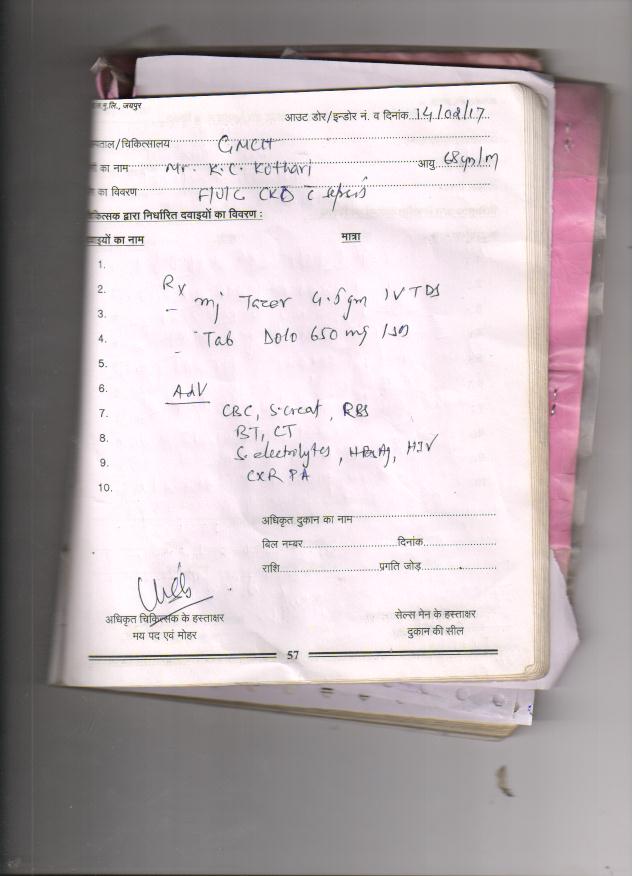 जयपुर
आउट डोर/इन्डोर नं. व दिनांक 14/02/17
ताल/चिकित्सालय GMCH
का नाम Mr. K.C. Kothari आयु 68yn/m
का विवरण F/U/C CKD c sepsis
चिकित्सक द्वारा निर्धारित दवाइयों का विवरण :
वाइयों का नाम मात्रा
1.
2. Rx
3. Inj Tazer 4.5gm IV TDS
4. Tab Dolo 650 mg
5.
6. Adv
7. CBC, S.creat, RBS
8. BT, CT
9. S.electrolytes, HBsAg, HIV
CXR PA
10.
अधिकृत दुकान का नाम
बिल नम्बर दिनांक
राशि प्रगति जोड़
अधिकृत चिकित्सक के हस्ताक्षर सेल्स मेन के हस्ताक्षर
मय पद एवं मोहर दुकान की सील
57